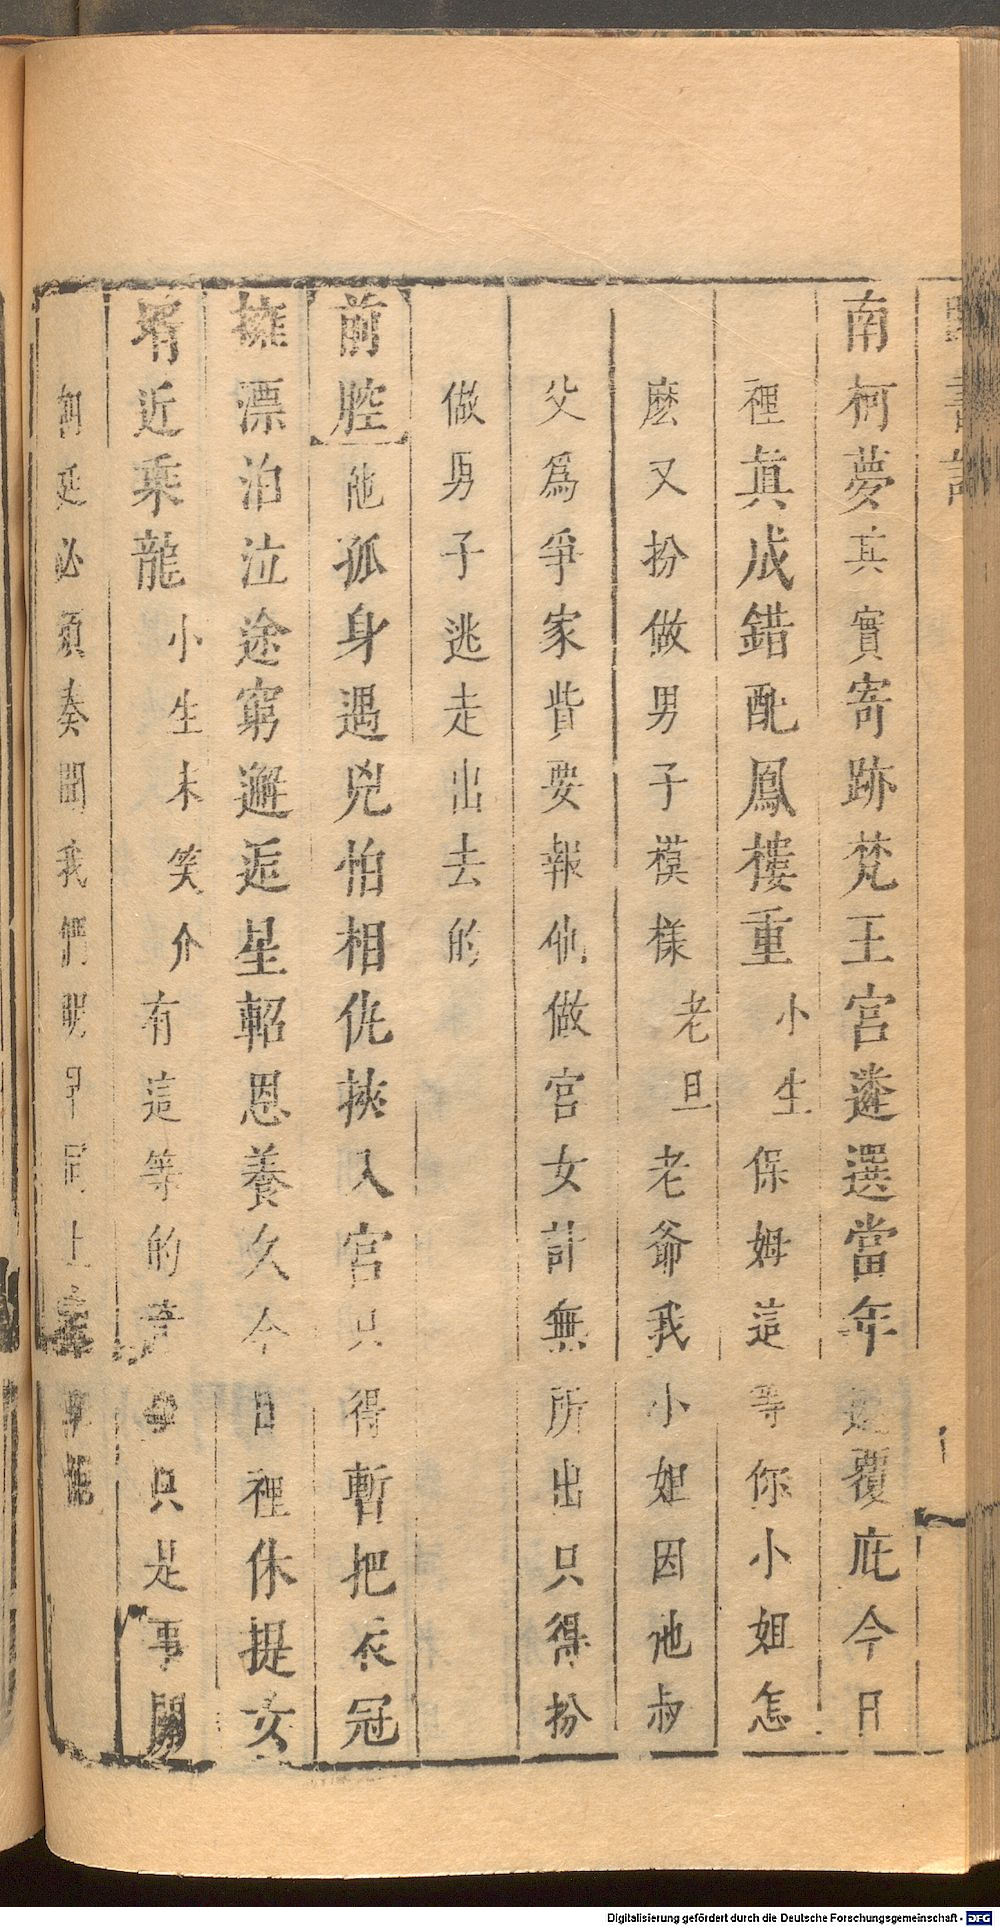 南柯夢其實寄跡梵王宮遴選當年遮覆庇今日
裡真成錯配鳳樓重小生保姆這等你小姐怎
麽又扮做男子模樣老旦老爺我小姐因他叔
父爲爭家貲要報他做宮女計無所出只得扮
做男子逃走出去的
前腔他孤身遇兇怕相仇挾入宮只得暫把衣冠
擁漂泊泣途窮邂逅星軺恩養久今日裡休提女
壻近乘龍小生未笑介有這等的奇事只是事關
朝廷必須奏聞我們明早同上
Digitalisierung gefördert durch die Deutsche Forschungsgemeinschaft - DFG